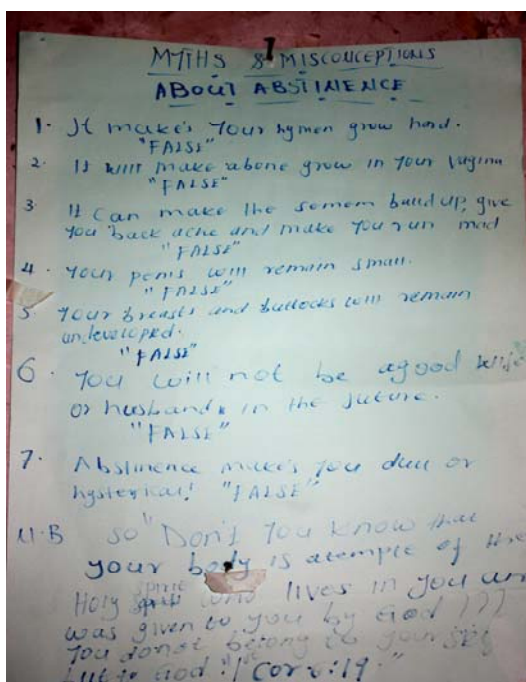 MYTHS & MISCONCEPTIONS
ABOUT ABSTINENCE
1. It make's your hymen grow hard.
"FALSE"
2. It will make abone grow in your vagina
"FALSE"
3 It Can make the semem build up, give
you back ache and make you run mad
"FALSE"
4. Your penis will remain small.
"FALSE"
5. Your breasts and buttocks will remain
undeveloped.
"FALSE"
6. You will not be agood wife
or husband in the future.
"FALSE"
7. Abstinence make's you dull or
hysterical! "FALSE"
N.B so "Don't you know that
your body is atemple of the
Holy spirit who lives in you
was given to you by God ???
You donot belong to yourself
but to God "1 Cor 6:19."